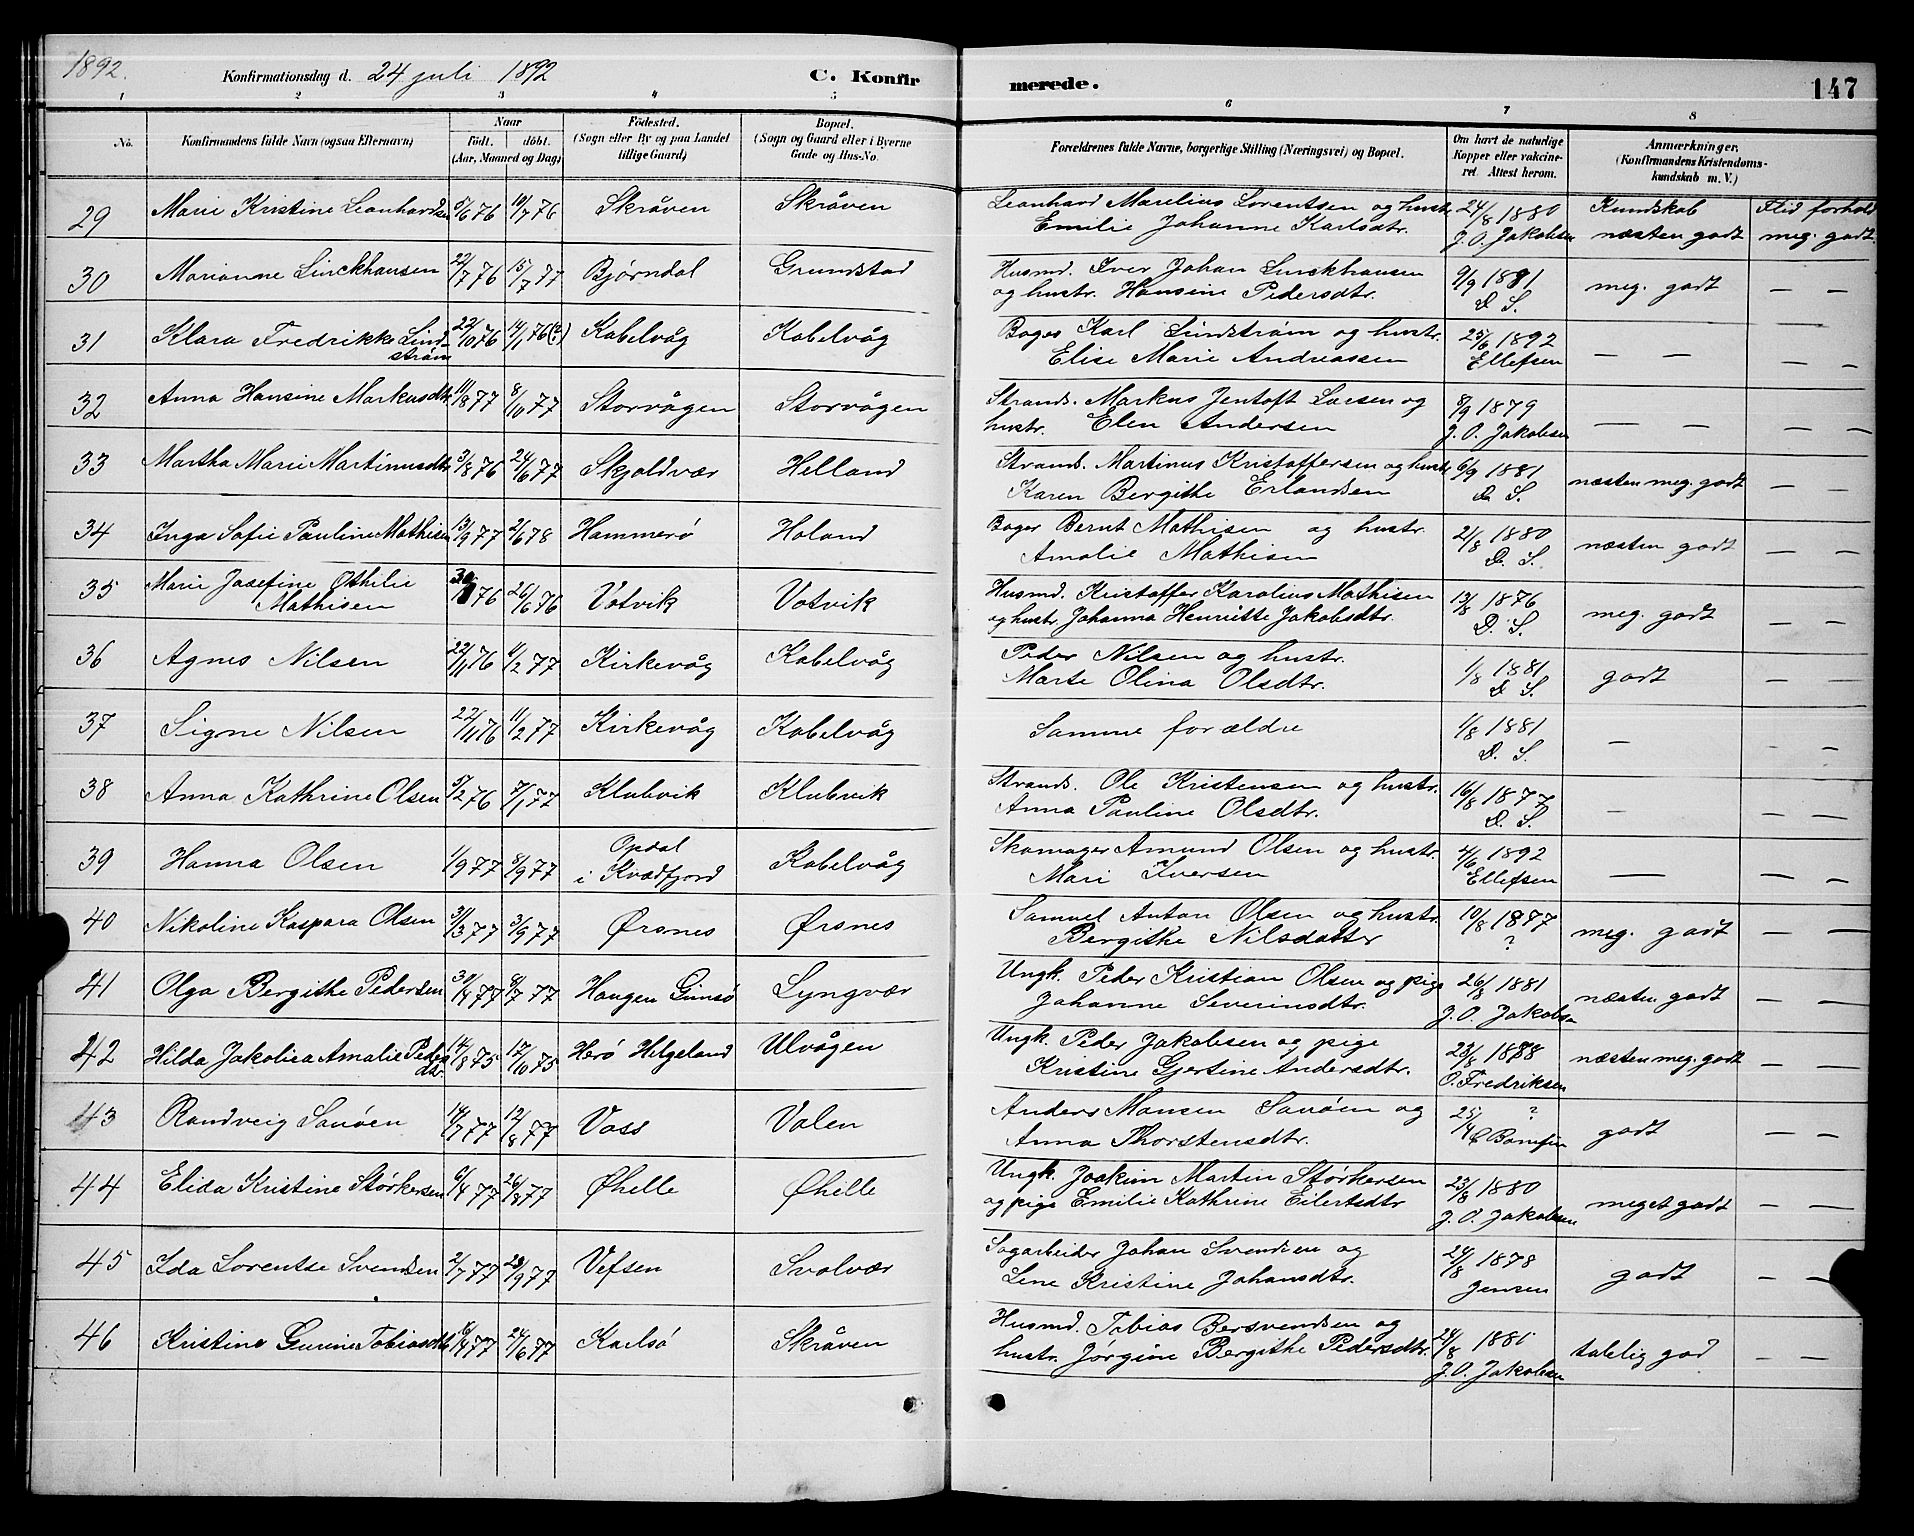 1892.
Konfirmationsdag d. 24 juli 1892 C. Konfirmerede. 147
1 2 3 4 5 6 7 8
No. Konfirmandens fulde Navn (ogsaa Efternavn) Naar Födt. döbt. (Aar, Maaned og Dag) Födested. (Sogn eller By og paa Landet tillige Gaard) Bopæl. (Sogn og Gaard eller i Byerne Gade og Hus-No. Forældrenes fulde Navne, borgerlige Stilling (Næringsvei) og Bopæl. Om havt de naturlige Kopper eller vakcineret. Attest herom. Anmærkninger. (Konfirmandens Kristendomskundskab m. V.)
Kundskab Flid forhold
29 Marie Kristine Leonhardsen 5/6 76 10/7 76 Skråven Skråven Leonhard Marelius Lorentsen og hustr. Emilie Johanne Karlsdtr. 24/8 1880 J. O. Jakobsen næsten godt meg. godt
30 Marianne Linckhausen 22/7 76 15/7 77 Bjørndal Grundstad Husmd. Iver Johan Linckhausen og hustr. Hansine Pedersdtr. 9/9 1881 D. S. meg. godt — —
31 Klara Fredrikke Lindstrøm 22/10 76 14/1 76(?) Kabelvåg Kabelvåg Bager Karl Lindstrøm og hustr. Elise Marie Andreassen 25/6 1892 Ellefsen — — — —
32 Anna Hansine Markusdtr. 11/8 77 8/10 77 Storvågen Storvågen Strands. Markus Jentoft Larsen og hustr. Elen Andersen 8/9 1879 J. O. Jakobsen — — — —
33 Martha Marie Martinusdtr 3/8 76 24/6 77 Skjoldvær Helland Strands. Martinus Kristoffersen og hustr Karen Bergithe Erlandsen 6/9 1881 D. S. næsten meg. godt — —
34 Inga Sofie Pauline Mathisen 13/9 77 2/6 78 Hammerø Holand Bager Bernt Mathisen og hustr. Amalie Mathisen 21/8 1880 D. S. næsten godt — —
35 Marie Josefine Othilie Mathisen 76 26/6 76 Votvik Votvik Husmd. Kristoffer Karolius Mathisen og hustr. Johanna Henriette Jakobsdtr. 13/8 1876 D. S. meg. godt — —
36 Agnes Nilsen 22/11 76 11/2 77 Kirkevåg Kabelvåg Peder Nilsen og hustr. Marte Olina Olsdtr. 1/8 1881 D. S. godt — —
37 Signe Nilsen 22/11 76 11/2 77 Kirkevåg Kabelvåg Samme forældre 1/8 1881 D. S. — — —
38 Anna Kathrine Olsen 5/2 76 7/1 77 Klubvik Klubvik Strands. Ole Kristensen og hustr. Anna Pauline Olsdtr. 16/8 1877 D. S. — — —
39 Hanna Olsen 1/9 77 8/9 77 Opdal i Kvædfjord Kabelvåg Skomager Amund Olsen og hustr. Mari Iversen 4/6 1892 Ellefsen — — —
40 Nikoline Kaspara Olsen 31/3 77 3/9 77 Ørsnes Ørsnes Samuel Anton Olsen og hustr. Bergithe Nilsdatter 10/8 1887 ? meg. godt — —
41 Olga Bergithe Pedersen 30/4 77 8/7 77 Haugen Gimsø Lyngvær Ungk. Peder Kristian Olsen og pige Johanne Severinsdtr. 26/8 1881 J. O. Jakobsn næsten godt — —
42 Hilda Jakolica Amalie Pedersdtr. 14/8 75 17/10 75 Herø Helgeland Ulvågen Ungk. Peder Jakobsen og pige Kristine Gjertine Andersdtr. 23/8 1888 O. Fredriksen næsten meg. godt — —
43 Randveig Sanøen 14/7 77 12/8 77 Voss Valen Anders Monsen Sanøen og Anna Thorstensdtr. 25/4 ? godt — —
44 Elida Kristine Størkersen 6/4 77 26/8 77 Øhelle Øhelle Ungk. Joakim Martin Størkersen og pige Emilie Kathrine Eilertsdtr 23/8 1880 J. O. Jakobsen meget godt — —
45 Ida Lorentse Svendsen 2/7 77 23/9 77 Vefsen Svolvær Sagarbeider Johan Svendsen og Line Kristine Johansdtr. 24/8 1878 Jensen godt — —
46 Kristine Gurine Tobiasdtr 16/4 77 24/6 77 Karlsø Skråven Husmd. Tobias Bersvendsen og hustr. Jørgine Bergithe Pedersdtr. 24/8 1881 J. O. Jakobsen talelig god — —